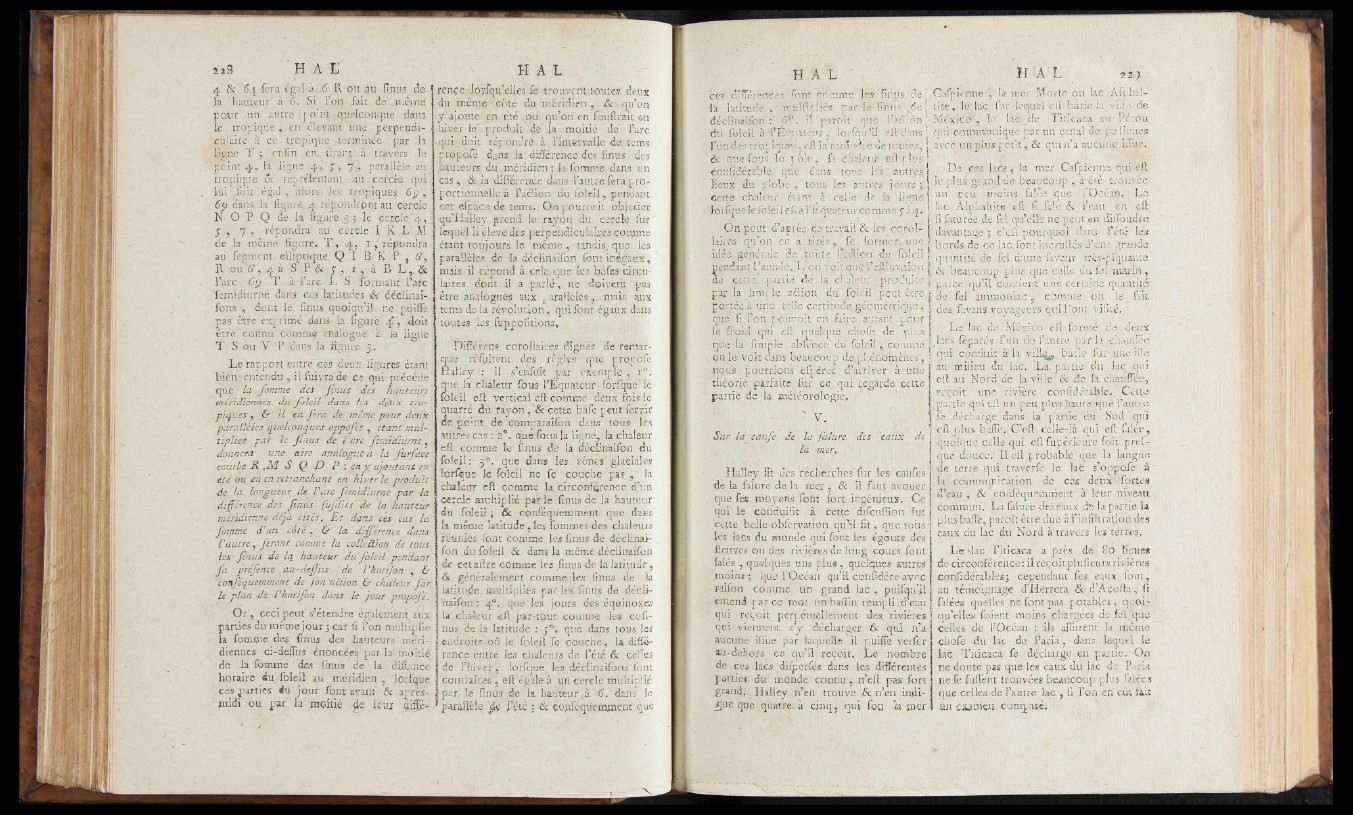 228 H A L
4 & 64 sera égal à 6 R ou au sinus de
la hauteur à 6. Si l'on fait de même
pour un autre point quelconque dans
le tropique, en élevant une perpendi-
culaire à ce tropique terminée par la
ligne T ; enfin en tirant à travers le
point 4, la ligne 4, 5, 7, parallèle au
tropique & représentant au cercle qui
lui soit égal, alors les tropiques 69,
69 dans la figure 4 répondront au cercle
N O P Q de la figure 3 ; le cercle 4,
5, 7, répondra au cercle I K L M
de la même figure. T, 4, 1, répondra
au segment elliptique Q I B K P, 6,
R ou 6, 4 à S P & 5, 1, à B L, &
l'arc 69 T à l'arc L S formant l'arc
semidiurne dans ces latitudes & déclinai-
sons, dont le sinus quoiqu'il ne puisse
pas être exprimé dans la figure 4, doit
être connu comme analogue à la ligne
T S ou V P dans la figure 3.
Le rapport entre ces deux figures étant
bien entendu, il suivra de ce qui précède
que la somme des sinus des hauteurs
méridiennes du soleil dans les deux tro-
piques, & il en sera de même pour deux
parallèles quelconques opposés, étant mul-
tipliée par le sinus de l'arc semidiurne,
donnera une aire analogue à la surface
courbe R M S Q D P : en y ajoutant en
été ou en en retranchant en hiver le produit
de la longueur de l'arc semidiurne par la
différence des sinus susdits de la hauteur
méridienne déjà cités. Et dans ces cas la
somme d'un côté, & la différence dans
l'autre, seront comme la collection de tous
les sinus de la hauteur du soleil pendant
sa présence au-dessus de l'horison, &
conséquemment de son action & chaleur sur
le plan de l'horison dans le jour proposé.
Or, ceci peut s'étendre également aux
parties du même jour ; car si l'on multiplie
la somme des sinus des hauteurs méri-
diennes ci-dessus énoncées par la moitié
de la somme des sinus de la distance
horaire du soleil au méridien, lorsque
ces parties du jour sont avant & après-
midi ou par la moitié de leur diffé-
H A L
rence lorsqu'elles se trouvent toutes deux
du même côté du méridien, & qu'on
y ajoute en été ou qu'on en soustrait en
hiver le produit de la moitié de l'arc
qui doit répondre à l'intervalle de tems
proposé dans la différence des sinus des
hauteurs du méridien ; la somme dans un
cas, & la différence dans l'autre sera pro-
portionnelle à l'action du soleil, pendant
cet espace de tems. On pourroit objecter
qu'Halley prend le rayon du cercle sur
lequel il élève des perpendiculaires comme
étant toujours le même, tandis que les
parallèles de la déclinaison sont inégaux,
mais il répond à cela que les bases circu-
laires dont il a parlé, ne doivent pas
être analogues aux parallèles, mais aux
tems de la révolution, qui sont égaux dans
toutes les suppositions.
Différens corollaires dignes de remar-
que résultent des règles que propose
Halley : il s'ensuit par exemple, 1°.
que la chaleur sous l'Equateur lorsque le
soleil est vertical est comme deux fois le
quarré du rayon, & cette base peut servir
de point de comparaison dans tous les
autres cas : 2°. que sous la ligne, la chaleur
est comme le sinus de la déclinaison du
soleil : 3°. que dans les zônes glaciales
lorsque le soleil ne se couche pas, la
chaleur est comme la circonférence d'un
cercle multiplié par le sinus de la hauteur
du soleil ; & conséquemment que dans
la même latitude, les sommes des chaleurs
réunies sont comme les sinus de déclinai-
son du soleil & dans la même déclinaison
de cet astre comme les sinus de la latitude,
& généralement comme les sinus de la
latitude multipliés par les sinus de décli-
naison : 4°. que les jours des équinoxes
la chaleur est par-tout comme les cosi-
nus de la latitude : 5°. que dans tous les
endroits où le soleil se couche, la diffé-
rence entre les chaleurs de l'été & celles
de l'hiver, lorsque les déclinaisons sont
contraires, est égale à un cercle multiplié
par le sinus de la hauteur à 6. dans le
parallèle de l'été ; & conséquemment que
H A L
ces différences sont comme les sinus de
la latitude, multipliés par le sinus de
déclinaison : 6°. il paroît que l'action
du soleil à l'Equateur, lorsqu'il est dans
l'un des tropiques, est la moindre de toutes,
& que sous le pôle, sa chaleur est plus
considérable que dans tous les autres
lieux du globe, tous les autres jours ;
cette chaleur étant à celle de la ligne
lorsque le soleil est à l'Equateur comme 5 à 4.
On peut d'après ce travail & les corol-
laires qu'on en a tirés, se former une
idée générale de toute l'action du soleil
pendant l'année. L'on voit que l'estimation
de cette partie de la chaleur produite
par la simple action du soleil peut être
portée à une telle certitude géométrique,
que si l'on pouvoit en faire autant pour
le froid qui est quelque chose de plus
que la simple absence du soleil, comme
on le voit dans beaucoup de phénomènes,
nous pourrions espérer d'arriver à une
théorie parfaite sur ce qui regarde cette
partie de la météorologie.
V.
Sur la cause de la salure des eaux de
la mer.
Halley fit des recherches sur les causes
de la salure de la mer, & il faut avouer
que ses moyens sont fort ingénieux. Ce
qui le conduisit à cette discussion fut
cette belle observation qu'il fit, que tous
les lacs du monde qui sont les égouts des
fleuves ou des rivières de long cours sont
salés, quelques uns plus, quelques autres
moins ; que l'Océan qu'il considère avec
raison comme un grand lac, puisqu'il
entend par ce mot un bassin rempli d'eau
qui reçoit perpétuellement des rivières
qui viennent s'y décharger & qui n'a
aucune issue par laquelle il puisse verser
au-dehors ce qu'il reçoit. Le nombre
de ces lacs dispersés dans les différentes
parties du monde connu, n'est pas fort
grand. Halley n'en trouve & n'en indi-
que que quatre à cinq, qui sont la mer
H A L 229
Caspienne, la mer Morte ou lac Asphal-
tite, le lac sur lequel est bâtie la ville de
Mexico, le lac de Titicaca au Pérou
qui communique par un canal de 50 lieues
avec un plus petit, & qui n'a aucune issue.
De ces lacs, la mer Caspienne qui est
le plus grand de beaucoup, a été trouvée
un peu moins salée que l'Océan. Le
lac Alphaltite est si salé & l'eau en est
si saturée de sel qu'elle ne peut en dissoudre
davantage ; c'est pourquoi dans l'été les
bords de ce lac sont incrustés d'une grande
quantité de sel d'une saveur très-piquante
& beaucoup plus que celle du sel marin,
parce qu'il contient une certaine quantité
de sel ammoniac, comme on le sait
des savans voyageurs qui l'ont visité.
Le lac de Mexico est formé de deux
lacs séparés l'un de l'autre par la chaussée
qui conduit à la ville, batie sur une isle
au milieu du lac. La partie du lac qui
est au Nord de la ville & de la chaussée,
reçoit une rivière considérable. Cette
partie qui est un peu plus haute que l'autre
se décharge dans la partie du Sud qui
est plus basse. C'est celle-là qui est salée,
quoique celle qui est supérieure soit pres-
que douce. Il est probable que la langue
de terre qui traverse le lac s'oppose à
la communication de ces deux sortes
d'eau, & conséquemment à leur niveau
commun. La salure des eaux de la partie la
plus basse, paroît être due à l'infiltration des
eaux du lac du Nord à travers les terres.
Le lac Titicaca a près de 80 lieues
de circonférence : il reçoit plusieurs rivières
considérables ; cependant ses eaux sont,
au témoignage d'Herrera & d'Acosta, si
salées quelles ne sont pas potables, quoi-
qu'elles soient moins chargées de sel que
celles de l'Océan : ils assurent la même
chose du lac de Paria, dans lequel le
lac Titicaca se décharge en partie. On
ne doute pas que les eaux du lac de Paria
ne se fussent trouvées beaucoup plus salées
que celles de l'autre lac, si l'on en eût fait
un examen comparé.